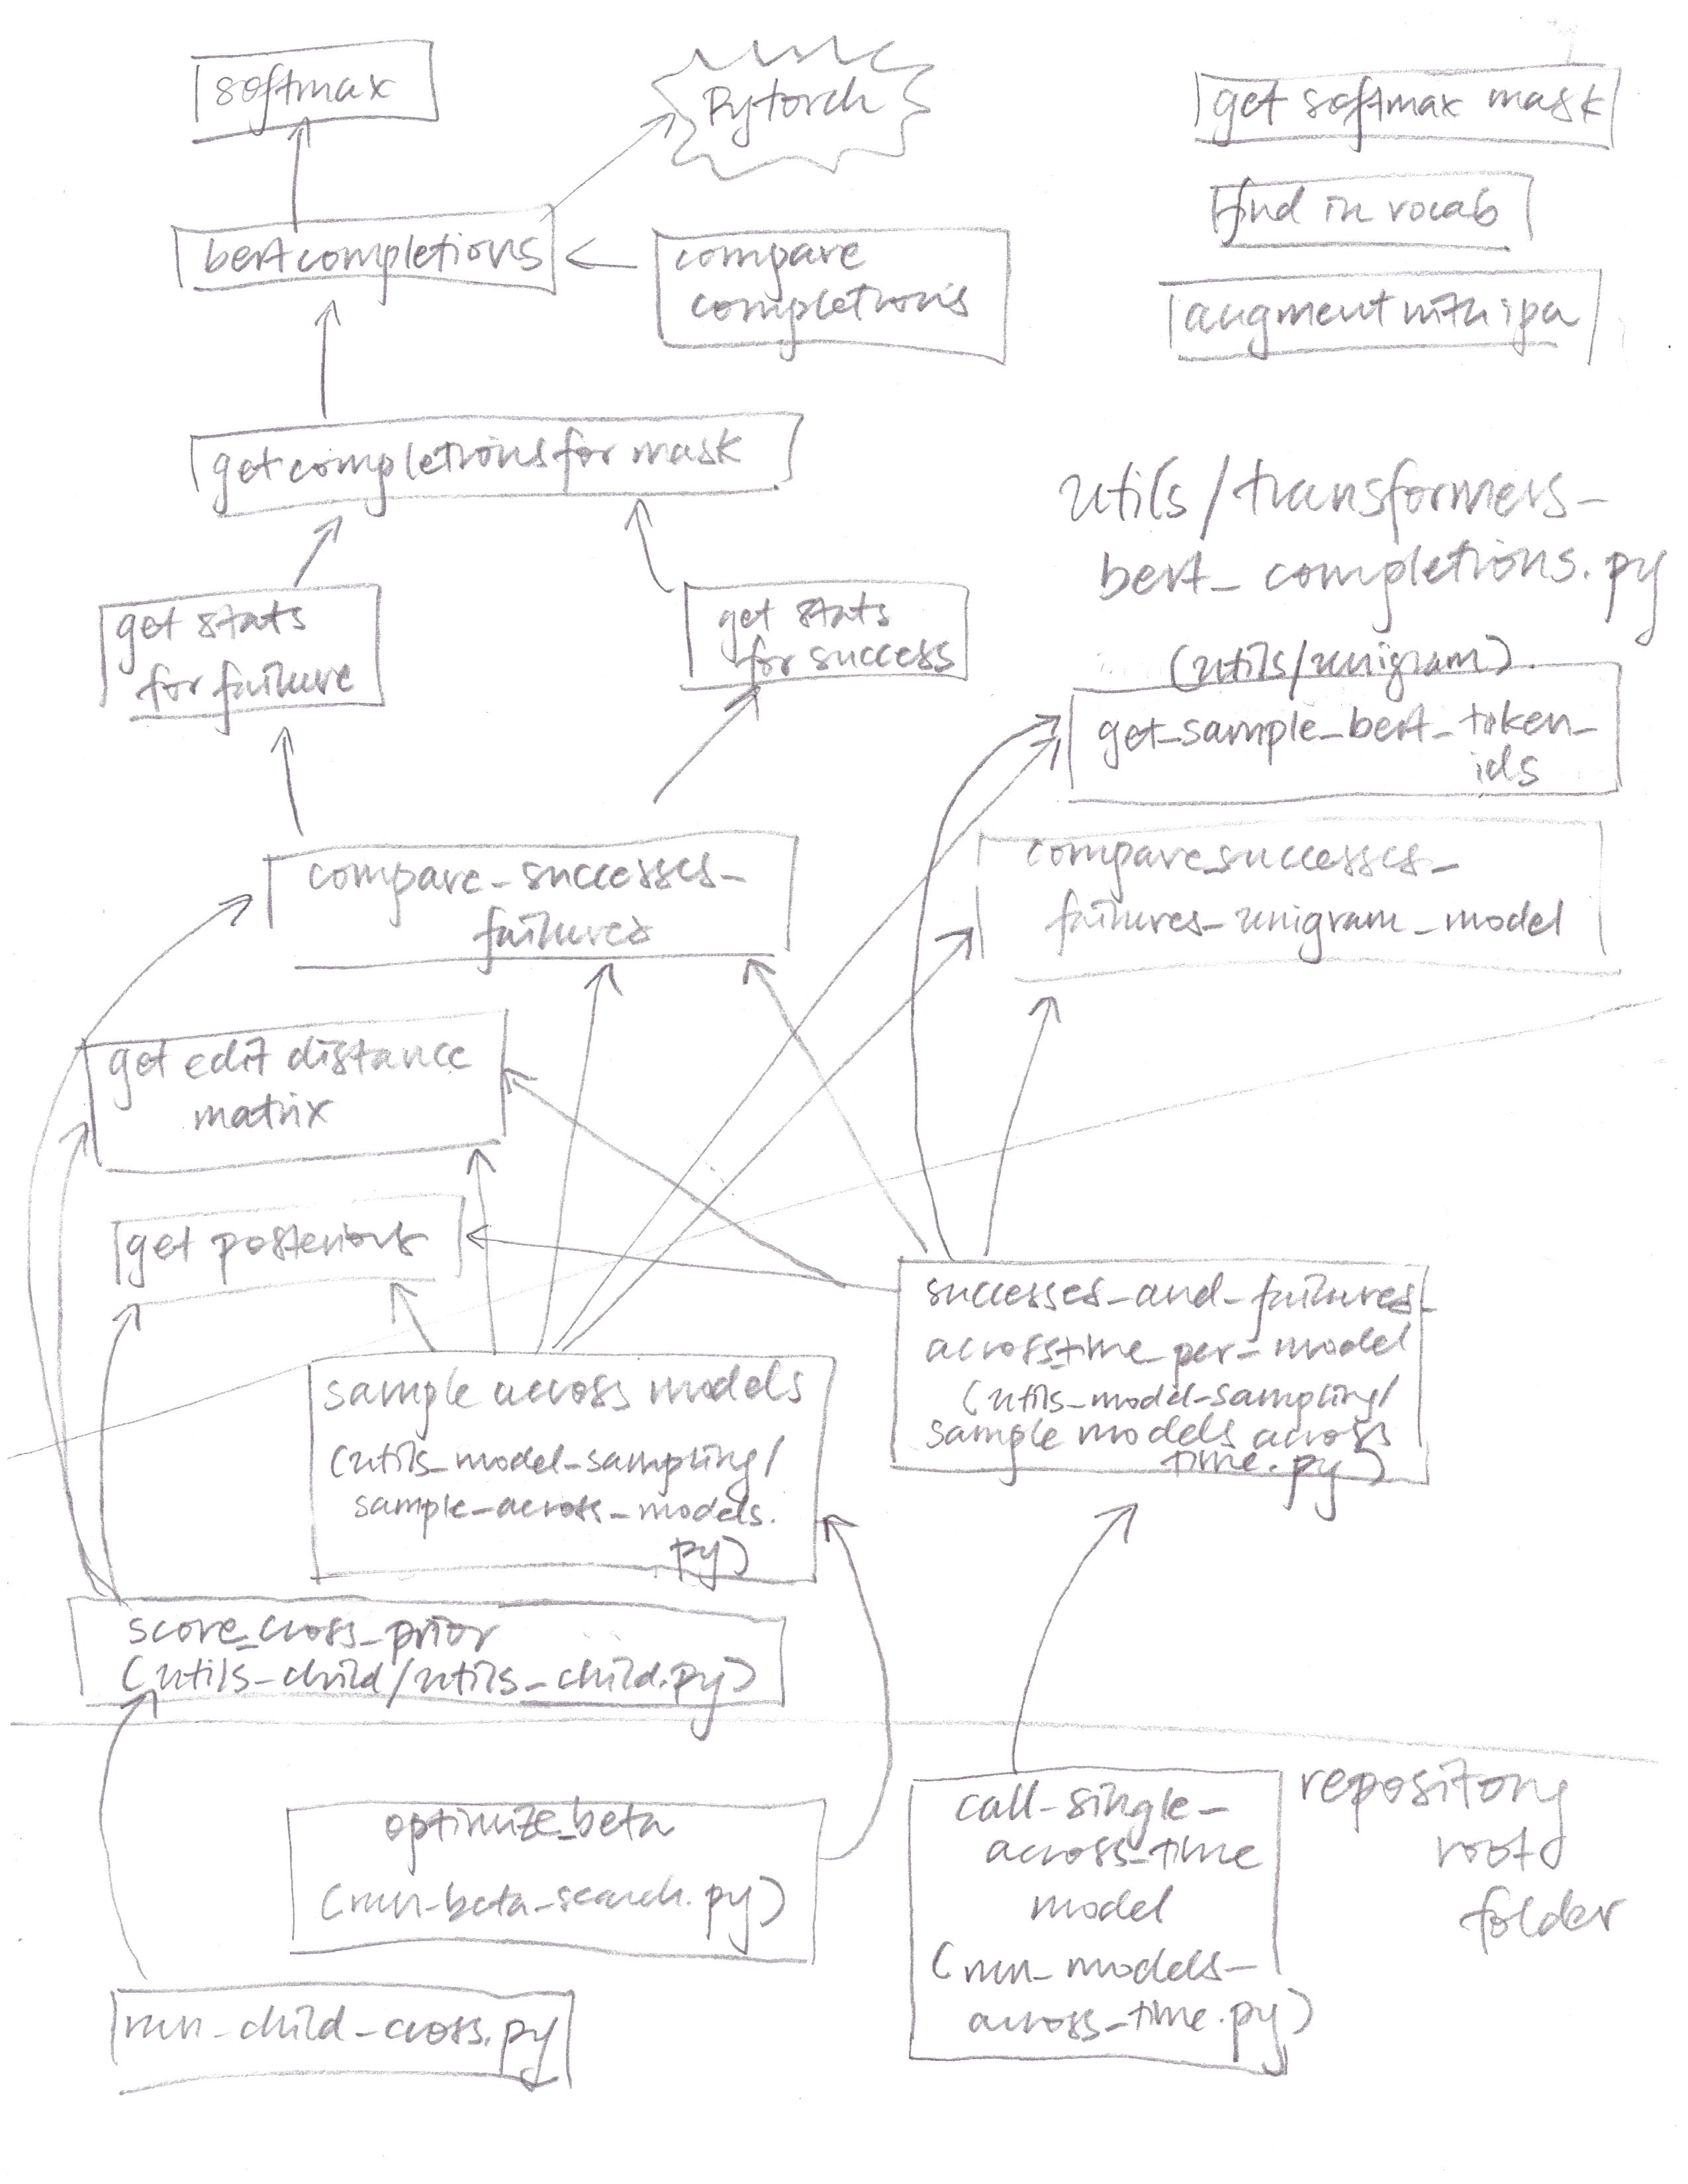 softmax
Pytorch
get softmax mask
find in vocab
bert completions
compare
completions
augment with ipa
get completions for mask
utils/transformers_
bert_completions.py
get stats
for failure
get stats
for success
(utils/unigram)
get_sample_bert_token_
ids
compare_successes_
failures
compare_successes_
failures_unigram_model
get edit distance
matrix
get posteriors
successes_and_failures_
across_time_per_model
(utils_model_sampling/
sample models across
time.py)
sample across models
(utils_model_sampling/
sample_across_models.
py)
score_cross_prior
(utils_child/utils_child.py)
optimize_beta
(run_beta_search.py)
call_single_
across_time
model
(run_models_
across_time.py)
repository
root
folder
run_child_cross.py